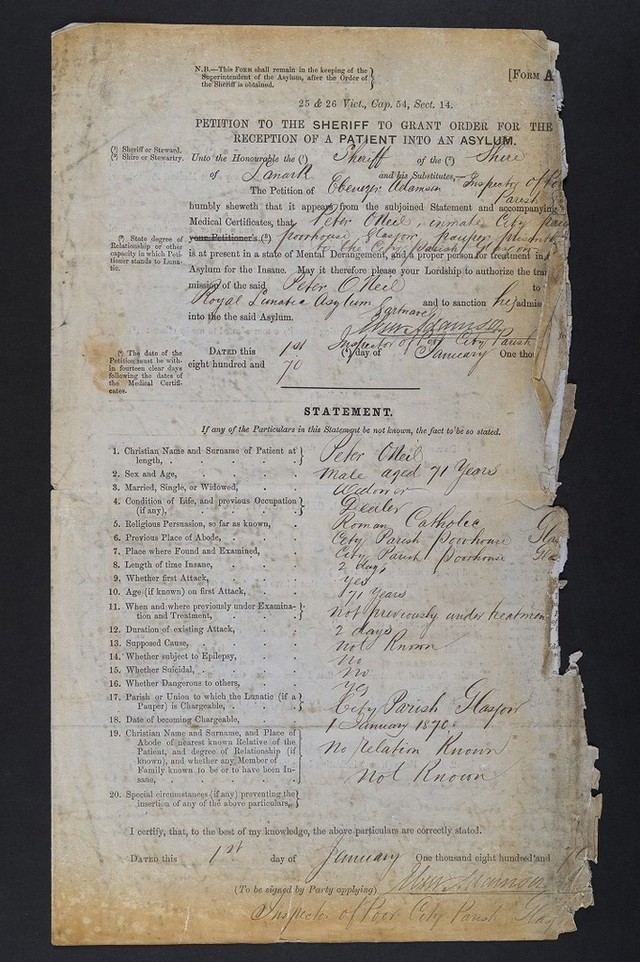 N.B.—This FORM shall remain in the keeping of the
Superintendent of the Asylum, after the Order of
the Sheriff is obtained.
[FORM A
25 & 26 Vict., Cap. 54, Sect. 14.
PETITION TO THE SHERIFF TO GRANT ORDER FOR THE
RECEPTION OF A PATIENT INTO AN ASYLUM.
(¹) Sheriff or Steward.
(²) Shire or Stewartry.
Unto the Honourable the (¹) Sheriff of the (²) Shire
of Lanark and his Substitutes,— Inspector of Poor
The Petition of Ebenezer Adamson Parish
humbly sheweth that it appears from the subjoined Statement and accompanying
Medical Certificates, that Peter O'Neil, inmate City
(³) State degree of
Relationship or other
capacity in which Peti-
tioner stands to Luna-
tic.
your Petitioner's (³) poorhouse Glasgow pauper
for the City Parish Glasgow
is at present in a state of Mental Derangement, and a proper person for treatment in a
Asylum for the Insane. May it therefore please your Lordship to authorize the tran
mission of the said Peter O'Neil to
Royal Lunatic Asylum Gartnavel and to sanction his admis
into the said Asylum.
Adamson
Inspector of Poor City Parish
(⁴) The date of the
Petition must be with-
in fourteen clear days
following the dates of
the Medical Certifi-
cates.
DATED this 1st (⁴) day of January One thou
eight hundred and 70
STATEMENT.
If any of the Particulars in this Statement be not known, the fact to be so stated.
1. Christian Name and Surname of Patient at
length, Peter O'Neil
2. Sex and Age, Male aged 71 Years
3. Married, Single, or Widowed, Widower
4. Condition of Life, and previous Occupation
(if any), Dealer
5. Religious Persuasion, so far as known, Roman Catholic
6. Previous Place of Abode, City Parish Poorhouse Glas
7. Place where Found and Examined, City Parish Poorhouse Gla
8. Length of time Insane, 2 days
9. Whether first Attack, Yes
10. Age (if known) on first Attack, 71 Years
11. When and where previously under Examina-
tion and Treatment, Not previously under treatmen
12. Duration of existing Attack, 2 days
13. Supposed Cause, Not Known
14. Whether subject to Epilepsy, No
15. Whether Suicidal, No
16. Whether Dangerous to others, Yes
17. Parish or Union to which the Lunatic (if a
Pauper) is Chargeable, City Parish Glasgow
18. Date of becoming Chargeable, 1 January 1870.
19. Christian Name and Surname, and Place of
Abode of nearest known Relative of the
Patient, and degree of Relationship (if
known), and whether any Member of
Family known to be or to have been In-
sane, No relation Known
Not Known
20. Special circumstances (if any) preventing the
insertion of any of the above particulars,
I certify, that, to the best of my knowledge, the above particulars are correctly stated.
DATED this 1st day of January One thousand eight hundred and 70
(To be signed by Party applying) Adamson
Inspector of Poor City Parish Glasg